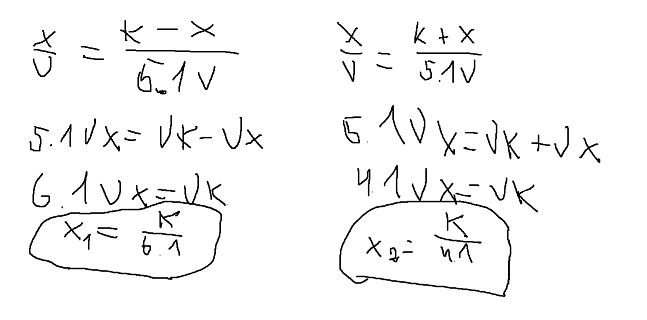 x/v = (k - x)/(5.1v)
5.1vx = vk - vx
6.1vx = vk
x₁ = k/6.1
x/v = (k + x)/(5.1v)
5.1vx = vk + vx
4.1vx = vk
x₂ = k/4.1